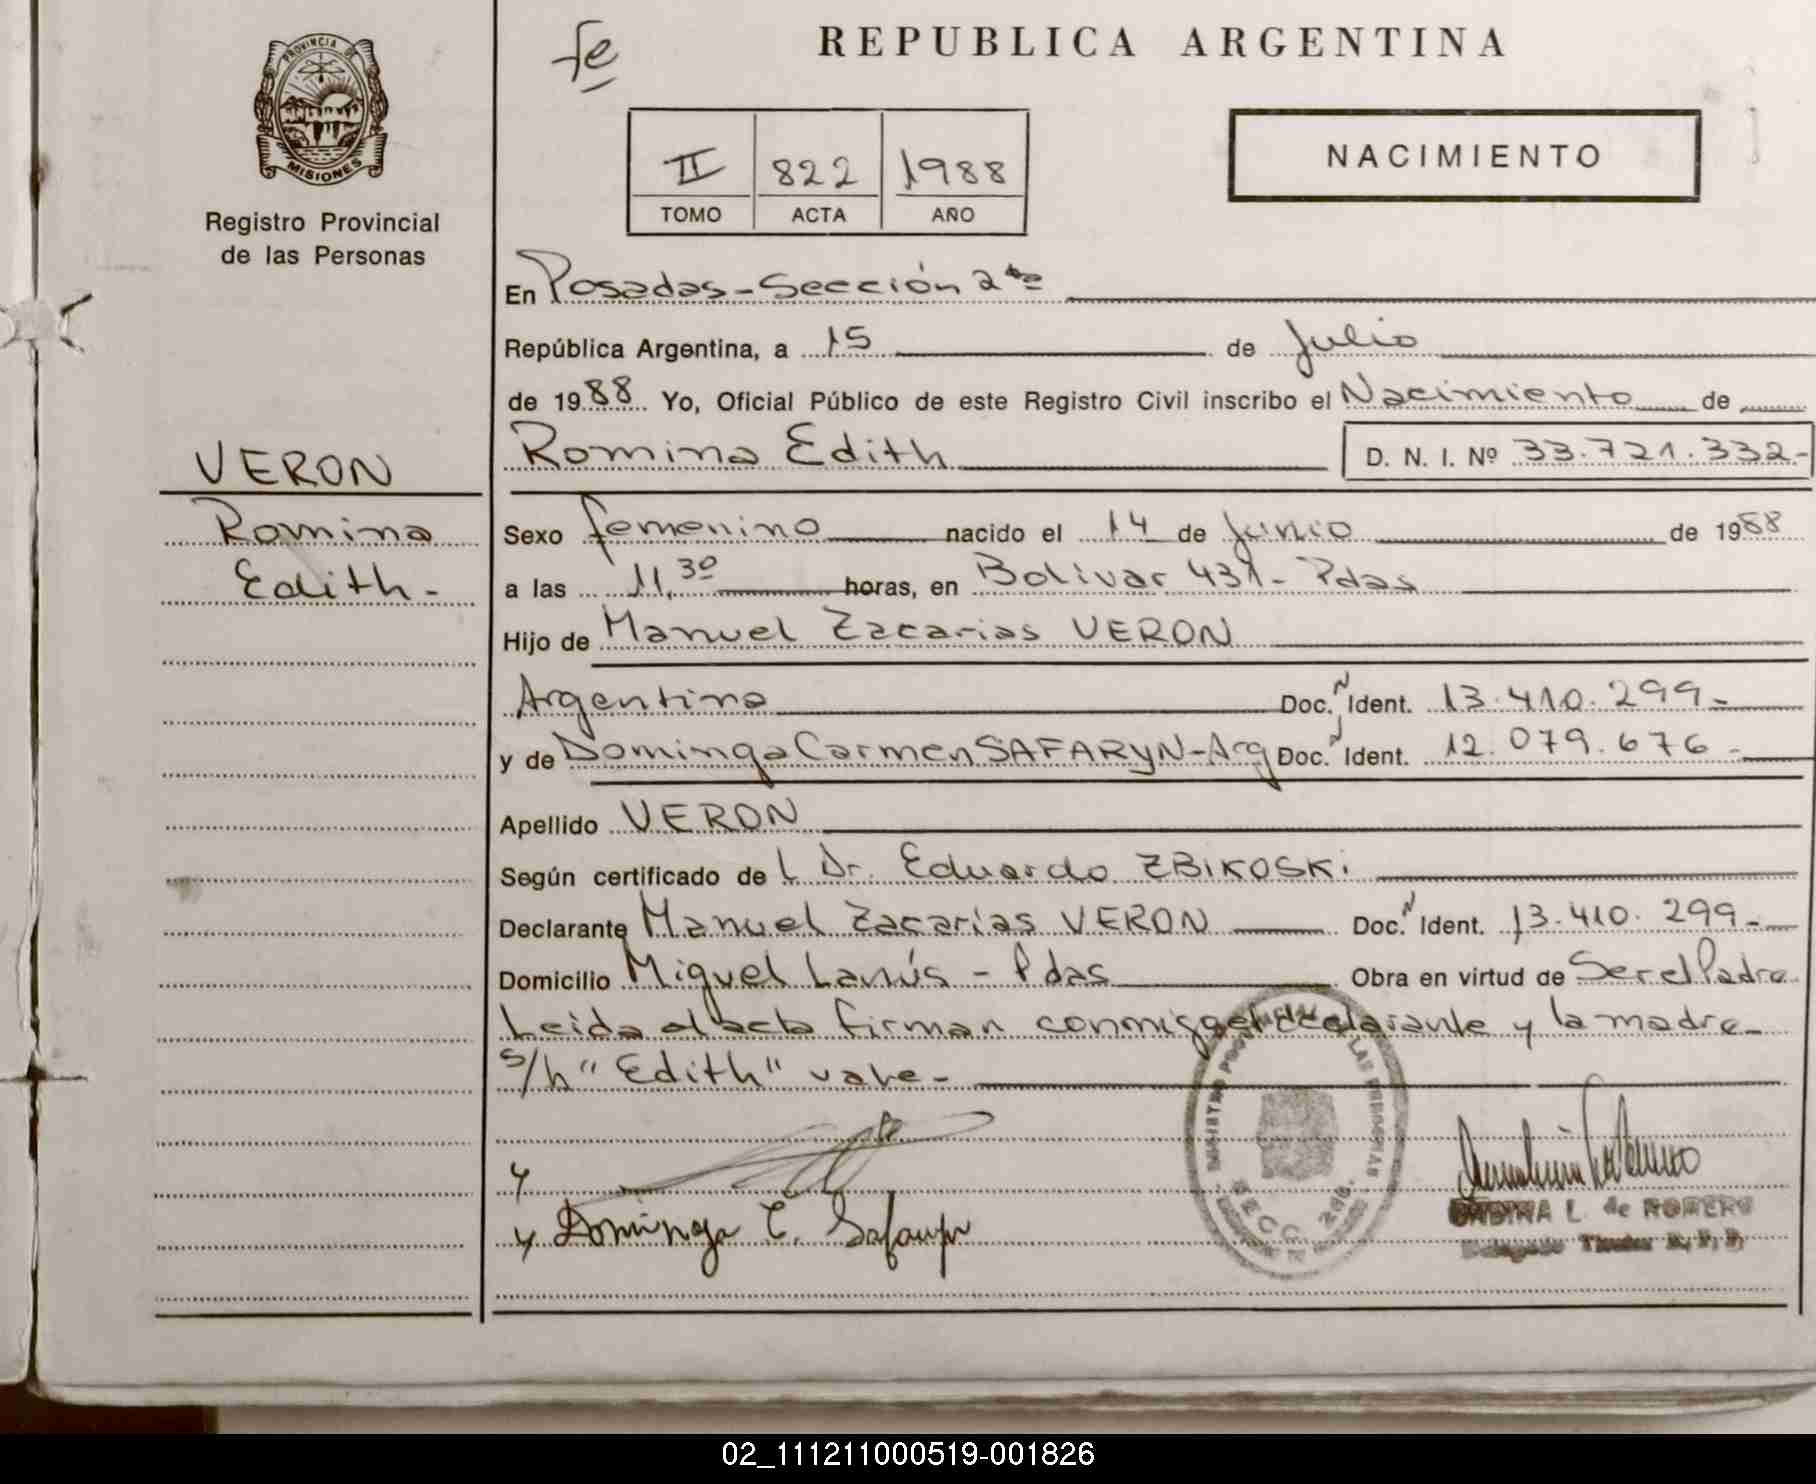 fe
REPUBLICA ARGENTINA
PROVINCIA DE
MISIONES
Registro Provincial
de las Personas
II 822 1988
TOMO ACTA AÑO
NACIMIENTO
En Posadas - Sección 2da
República Argentina, a 15 de Julio
de 1988 Yo, Oficial Público de este Registro Civil inscribo el Nacimiento de
Romina Edith D. N. I. Nº 33.721.332-
VERON
Romina
Edith-
Sexo femenino nacido el 14 de Junio de 1988
a las 11,30 horas, en Bolivar 431- Pdas
Hijo de Manuel Zacarias VERON
Argentina Doc. N Ident. 13.410.299-
y de Dominga Carmen SAFARYN-Arg Doc. N Ident. 12.079.676-
Apellido VERON
Según certificado de L Dr. Eduardo ZBIKOSKi
Declarante Manuel Zacarías VERON Doc. N Ident. 13.410.299-
Domicilio Miguel Lanús - Pdas Obra en virtud de Ser el Padre
Leida el acta firman conmigo el declarante y la madre-
s/h "Edith" vale-
Dominga C. Safaryn
SECC. 2da.
L. de ROMERO
Delegado Titular R. P. P.
02_111211000519-001826